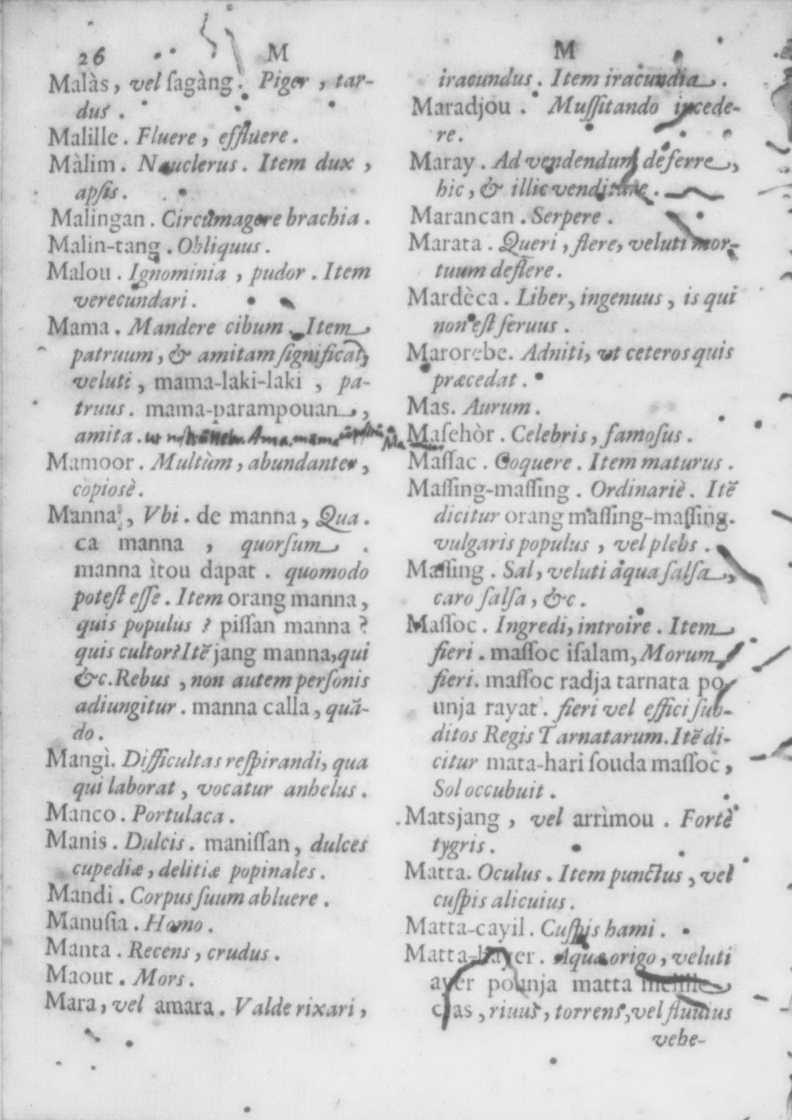 26 M
Malàs, vel ſagàng. Piger, tar-
dus.
Malille. Fluere, effluere.
Màlim. Nauclerus. Item dux,
apſis.
Malingan. Circumagere brachia.
Malin-tang. Obliquus.
Malou. Ignominia, pudor. Item
verecundari.
Mama. Mandere cibum. Item
patruum, & amitam ſignificat,
veluti, mama-laki-laki, pa-
truus. mama-parampouan,
amita.
Mamoor. Multùm, abundanter,
copiosè.
Manna, Vbi. de manna, Qua.
ca manna, quorſum.
manna ìtou dapat. quomodo
poteſt eſſe. Item orang manna,
quis populus? piſſan manna?
quis cultor? Itẽ jang manna, qui
&c. Rebus, non autem perſonis
adiungitur. manna calla, quã-
do.
Mangì. Difficultas reſpirandi, qua
qui laborat, vocatur anhelus.
Manco. Portulaca.
Manis. Dulcis. maniſſan, dulces
cupediæ, delitiæ popinales.
Mandi. Corpus ſuum abluere.
Manuſia. Homo.
Manta. Recens, crudus.
Maout. Mors.
Mara, vel amara. Valde rixari,
M
iracundus. Item iracundia.
Maradjou. Muſſitando incede-
re.
Maray. Ad vendendum deferre,
hic, & illic venditare.
Marancan. Serpere.
Marata. Queri, flere, veluti mor-
tuum deflere.
Mardèca. Liber, ingenuus, is qui
non eſt ſeruus.
Marorebe. Adniti, ut ceteros quis
præcedat.
Mas. Aurum.
Maſehòr. Celebris, famoſus.
Maſſac. Coquere. Item maturus.
Maſſing-maſſing. Ordinariè. Itẽ
dicitur orang maſſing-maſſing.
vulgaris populus, vel plebs.
Maſſing. Sal, veluti aqua ſalſa,
caro ſalſa, &c.
Maſſoc. Ingredi, introire. Item
fieri. maſſoc iſalam, Morum
fieri. maſſoc radja tarnata po
unja rayat. fieri vel effici ſub-
ditos Regis Tarnatarum. Itẽ di-
citur mata-hari ſouda maſſoc,
Sol occubuit.
Matsjang, vel arrìmou. Fortè
tygris.
Matta. Oculus. Item punctus, vel
cuſpis alicuius.
Matta-cayil. Cuſpis hami.
Matta-hayer. Aquæ origo, veluti
ayer pounja matta melille
cras, riuus, torrens, vel fluuius
vehe-